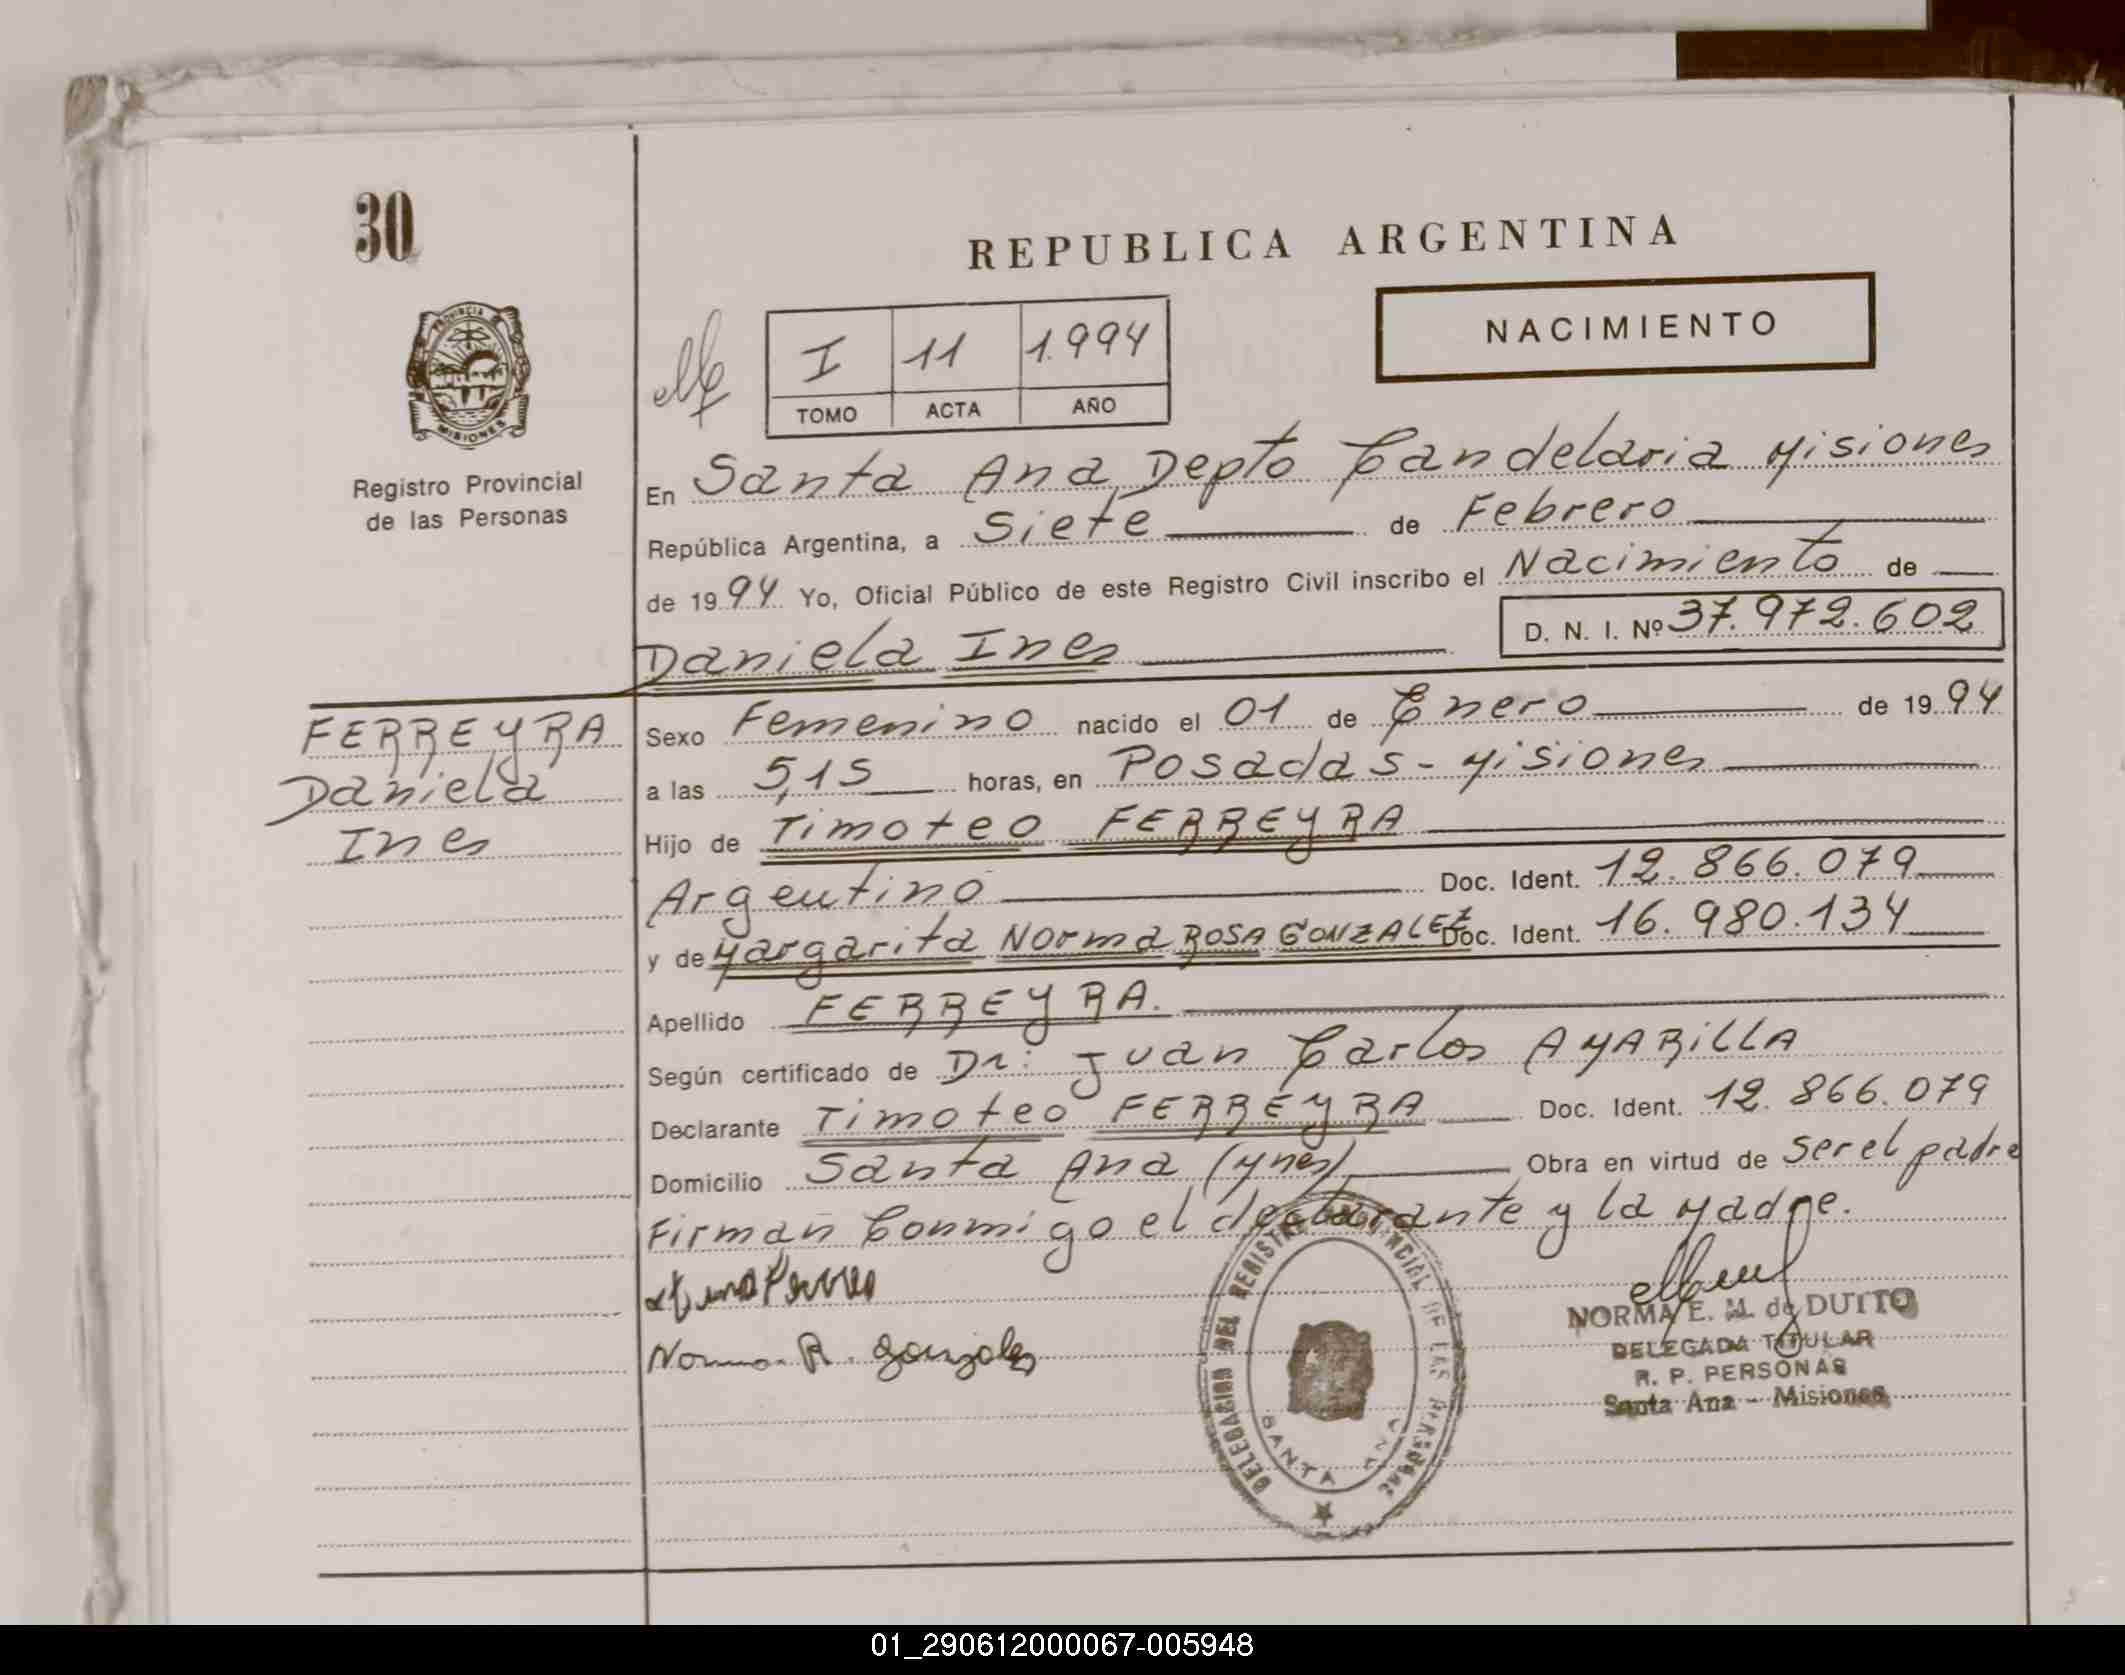 30
REPUBLICA ARGENTINA
NACIMIENTO
I 11 1.994
TOMO ACTA AÑO
PROVINCIA
MISIONES
Registro Provincial
de las Personas
En Santa Ana, Depto Candelaria Misiones
República Argentina, a Siete de Febrero
de 1994 Yo, Oficial Público de este Registro Civil inscribo el Nacimiento de
D. N. I. Nº 37.972.602
Daniela Ines
FERREYRA
Daniela
Ines
Sexo Femenino nacido el 01 de Enero de 1994
a las 5,15 horas, en Posadas - Misiones
Hijo de Timoteo FERREYRA
Argentino Doc. Ident. 12.866.079
y de Margarita Norma ROSA GONZALEZ Doc. Ident. 16.980.134
Apellido FERREYRA.
Según certificado de Dr: Juan Carlos AMARILLA
Declarante Timoteo FERREYRA Doc. Ident. 12.866.079
Domicilio Santa Ana (Mnes) Obra en virtud de ser el padre
Firman Conmigo el declarante y la Madre.
Norma R. Gonzalez
DELEGACION DEL REGISTRO PROVINCIAL DE LAS PERSONAS
SANTA ANA
NORMA E. M. de DUTTO
DELEGADA TITULAR
R. P. PERSONAS
Santa Ana - Misiones
01_290612000067-005948